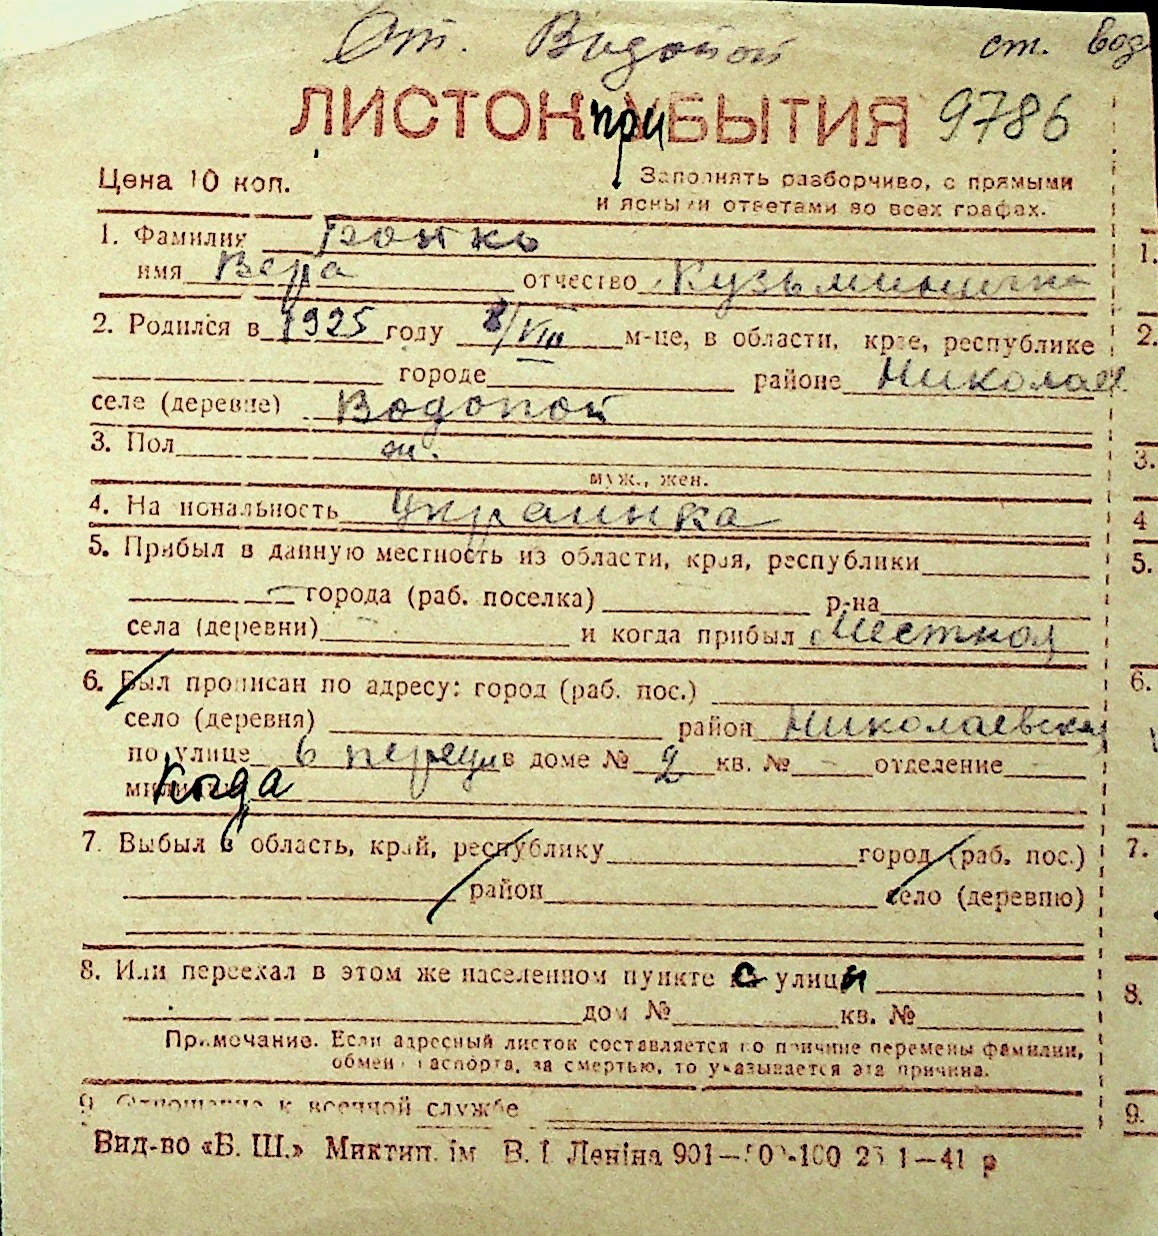 Ст. Водопой ст. Вод
ЛИСТОК при УБЫТИЯ 9786
Цена 10 коп. Заполнять разборчиво, с прямыми
и ясными ответами во всех графах.
1. Фамилия
имя Вера отчество Кузьминична
2. Родился в 1925 году 8/VIII м-це, в области, крае, республике
городе районе Николаев
селе (деревне) Водопой
3. Пол ж.
муж., жен.
4. Национальность Украинка
5. Прибыл в данную местность из области, края, республики
города (раб. поселка) р-на
села (деревни) и когда прибыл Местная
6. Был прописан по адресу: город (раб. пос.)
село (деревня) район Николаевский
по улице 6 переул в доме № 2 кв. № отделение
милиции Когда
7. Выбыл в область, край, республику город (раб. пос.)
район село (деревню)
8. Или переехал в этом же населенном пункте с улицы
дом № кв. №
Примечание. Если адресный листок составляется по причине перемены фамилии,
обмена паспорта, за смертью, то указывается эта причина.
9. Отношение к военной службе
Вид-во «Б. Ш.» Миктип. ім В. І Леніна 901— 100 1—41 р
1.
2.
3.
4
5.
6.
7.
8.
9.